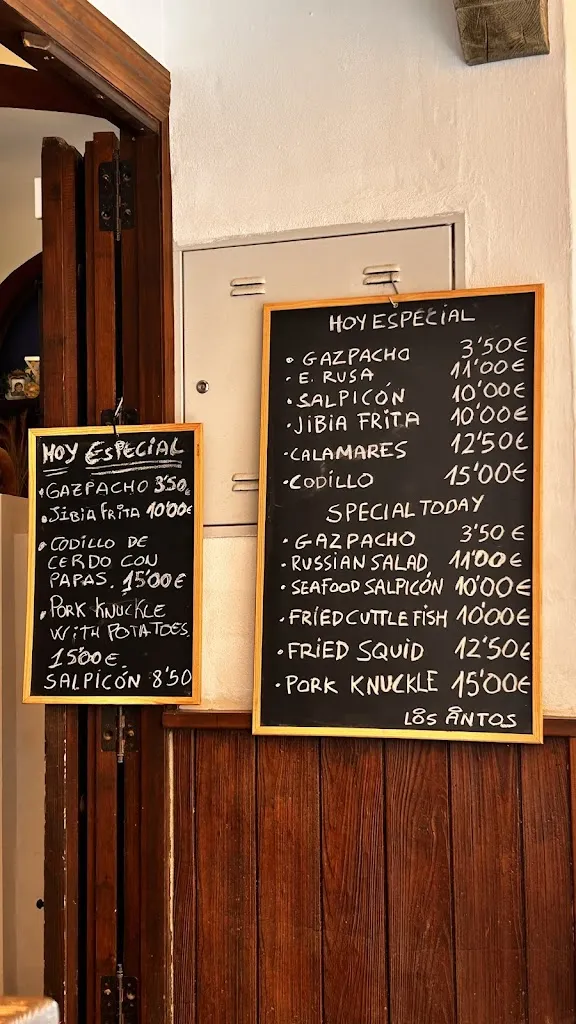 HOY ESPECIAL
• GAZPACHO 3'50
• JIBIA FRITA 10'00€
• CODILLO DE
CERDO CON
PAPAS. 15'00€
• PORK KNUCKLE
WITH POTATOES.
15'00€.
SALPICÓN 8'50
HOY ESPECIAL
• GAZPACHO 3'50€
• E. RUSA 11'00€
• SALPICÓN 10'00€
• JIBIA FRITA 10'00€
• CALAMARES 12'50€
• CODILLO 15'00€
SPECIAL TODAY
• GAZPACHO 3'50€
• RUSSIAN SALAD 11'00€
• SEAFOOD SALPICÓN 10'00€
• FRIED CUTTLE FISH 10'00€
• FRIED SQUID 12'50€
• PORK KNUCKLE 15'00€
LOS ANTOS